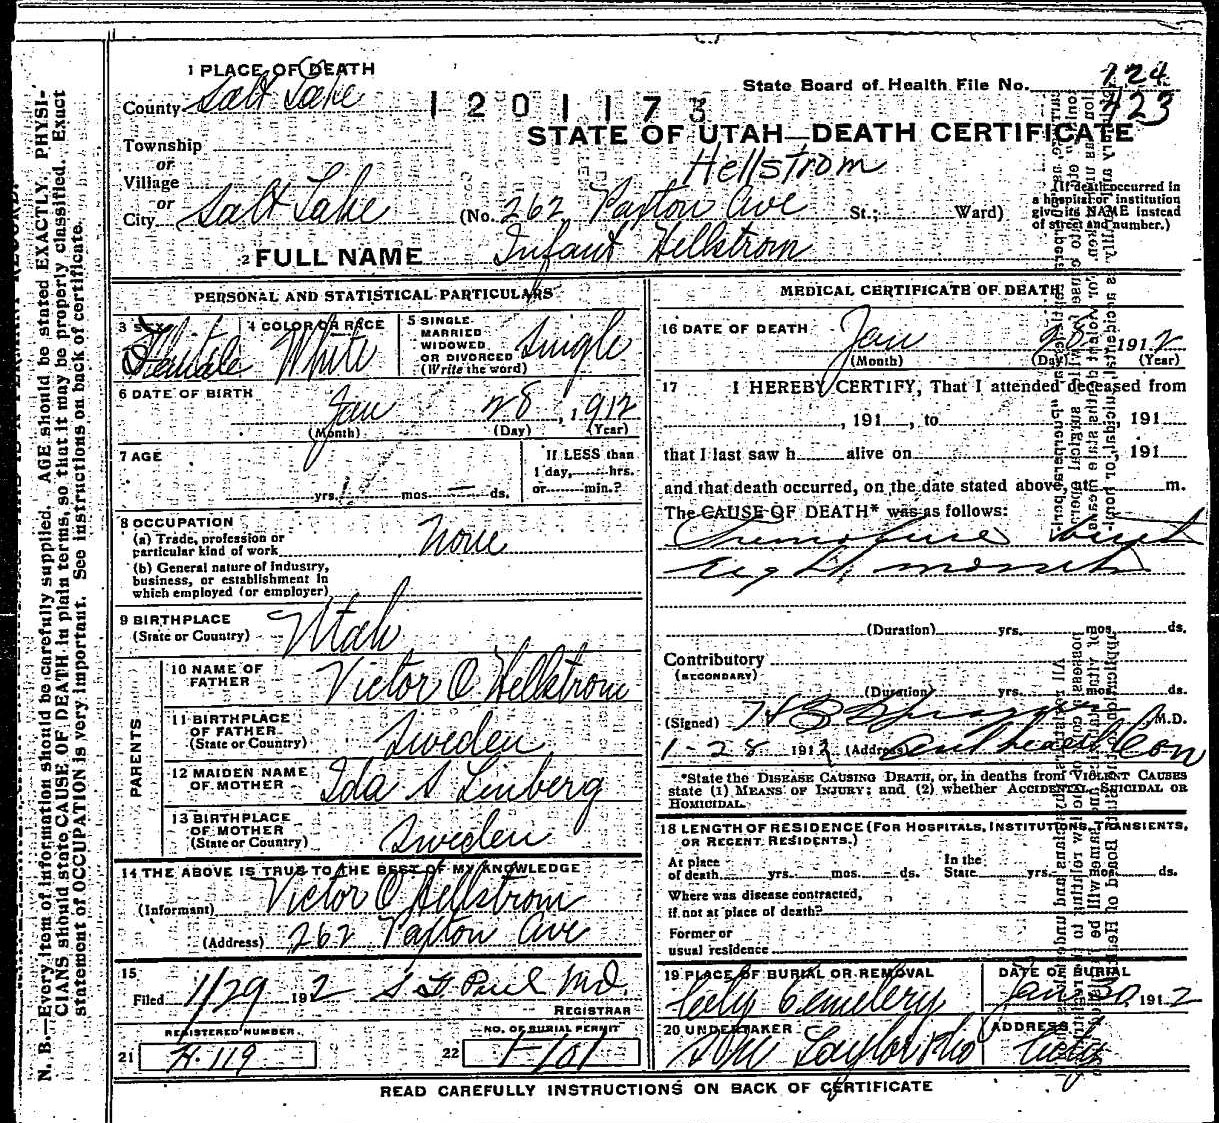 1 PLACE OF DEATH
County Salt Lake
1201173
State Board of Health File No. 124
423
STATE OF UTAH—DEATH CERTIFICATE
Township
or
Village
or
City Salt Lake (No. 262 Paxton Ave St.; Ward)
Hellstrom
(If death occurred in a hospital or institution give its NAME instead of street and number.)
2 FULL NAME Infant Hellstrom
PERSONAL AND STATISTICAL PARTICULARS
3 SEX Female
4 COLOR OR RACE White
5 SINGLE MARRIED WIDOWED OR DIVORCED (Write the word) Single
6 DATE OF BIRTH Jan 28, 1912
(Month) (Day) (Year)
7 AGE yrs. mos. — ds.
If LESS than 1 day, hrs. or min.?
8 OCCUPATION
(a) Trade, profession or particular kind of work None
(b) General nature of Industry, business, or establishment in which employed (or employer)
9 BIRTHPLACE (State or Country) Utah
PARENTS
10 NAME OF FATHER Victor O Hellstrom
11 BIRTHPLACE OF FATHER (State or Country) Sweden
12 MAIDEN NAME OF MOTHER Ida S Linberg
13 BIRTHPLACE OF MOTHER (State or Country) Sweden
14 THE ABOVE IS TRUE TO THE BEST OF MY KNOWLEDGE
(Informant) Victor O Hellstrom
(Address) 262 Paxton Ave
15 Filed 1/29 1912
REGISTRAR
REGISTERED NUMBER
21 H-119
NO. OF BURIAL PERMIT
22
MEDICAL CERTIFICATE OF DEATH
16 DATE OF DEATH Jan 28 1912
(Month) (Day) (Year)
17 I HEREBY CERTIFY, That I attended deceased from
, 191 , to , 191
that I last saw h alive on , 191
and that death occurred, on the date stated above, at m.
The CAUSE OF DEATH* was as follows:
Premature birth
Eight months
(Duration) yrs. mos. ds.
Contributory (SECONDARY)
(Duration) yrs. mos. ds.
(Signed) M.D.
1-28 1912 (Address)
*State the DISEASE CAUSING DEATH, or, in deaths from VIOLENT CAUSES
state (1) MEANS OF INJURY; and (2) whether ACCIDENTAL, SUICIDAL OR
HOMICIDAL.
18 LENGTH OF RESIDENCE (FOR HOSPITALS, INSTITUTIONS, TRANSIENTS,
OR RECENT RESIDENTS.)
At place of death yrs. mos. ds. In the State yrs. mos. ds.
Where was disease contracted,
if not at place of death?
Former or
usual residence
19 PLACE OF BURIAL OR REMOVAL City Cemetery
DATE OF BURIAL Jan 30, 1912
20 UNDERTAKER Taylor
ADDRESS City
READ CAREFULLY INSTRUCTIONS ON BACK OF CERTIFICATE
N. B.—Every item of information should be carefully supplied. AGE should be stated EXACTLY. PHYSI-
CIANS should state CAUSE OF DEATH in plain terms, so that it may be properly classified. Exact
statement of OCCUPATION is very important. See instructions on back of certificate.